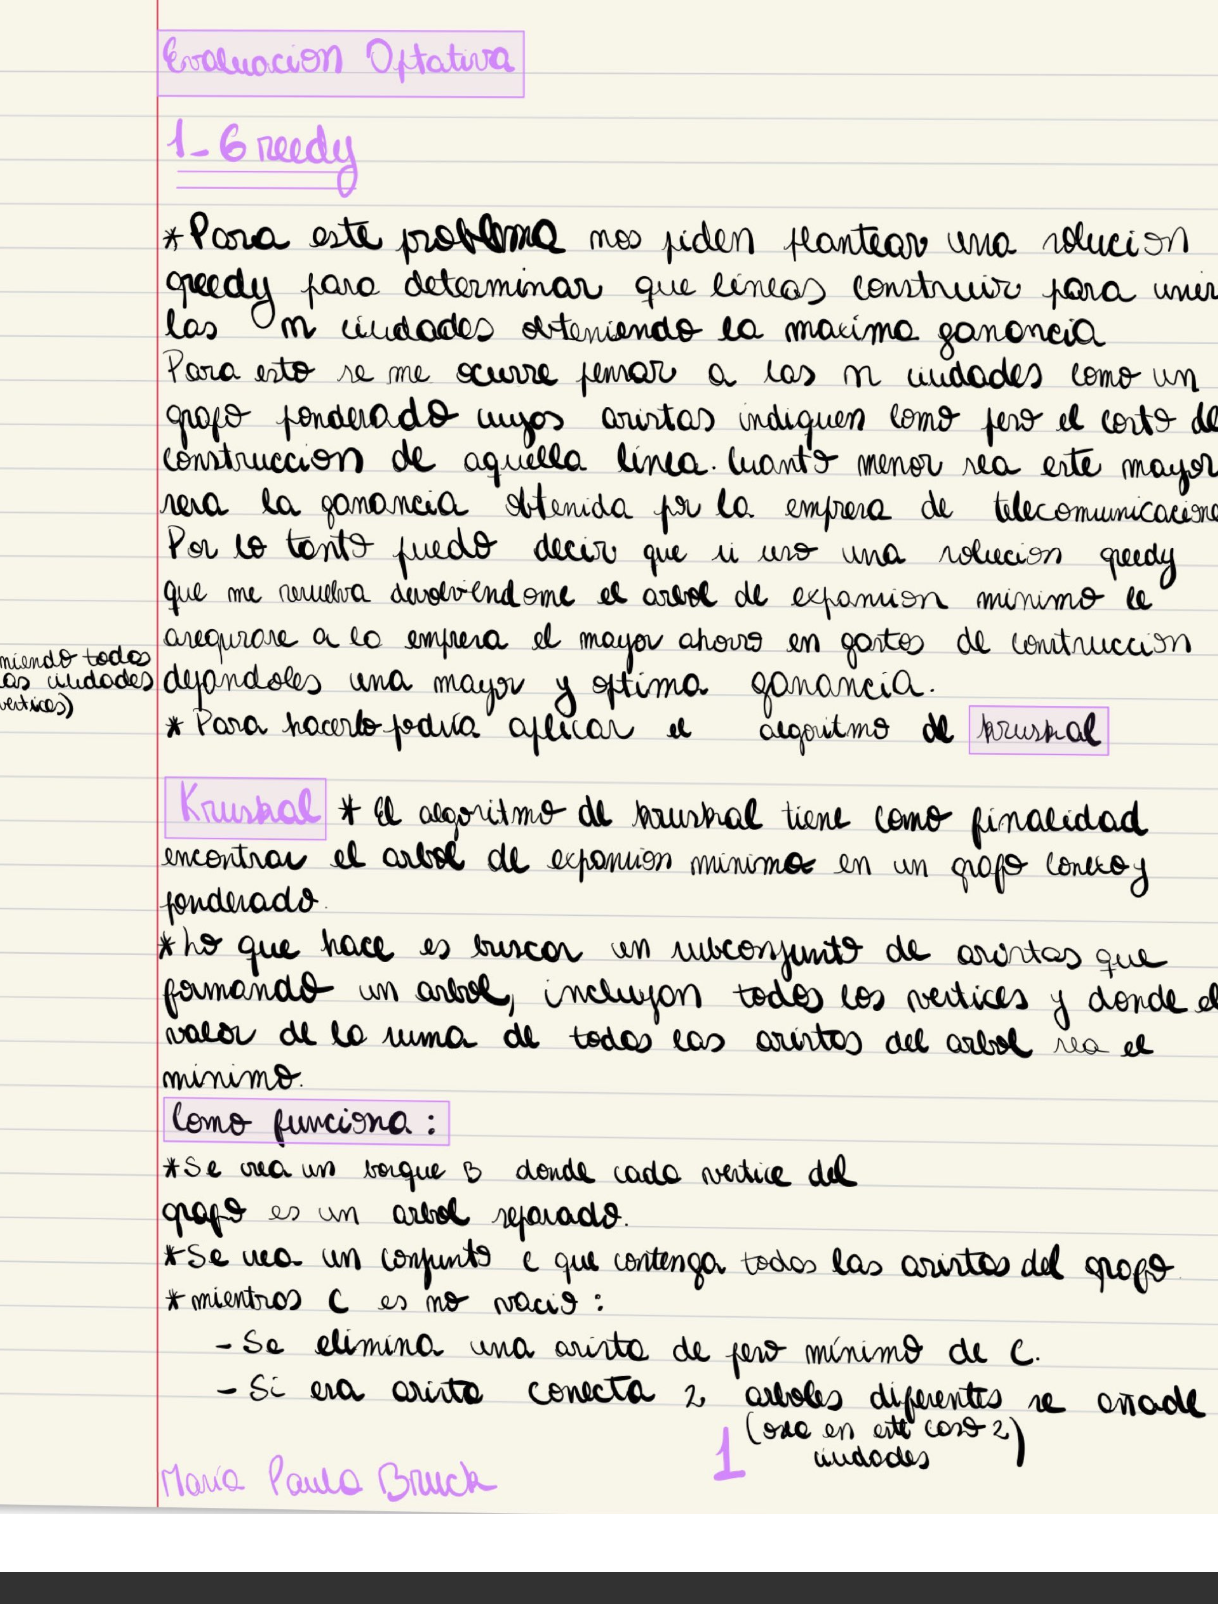 Evaluacion Optativa
1- Greedy
* Para este problema nos piden plantear una solucion
greedy para determinar que lineas construir para unir
las n ciudades obteniendo la maxima ganancia
Para esto se me ocurre pensar a las n ciudades como un
grafo ponderado cuyas aristas indiquen como peso el costo de
construccion de aquella linea. Cuanto menor sea este mayor
sera la ganancia obtenida por la empresa de telecomunicacione
Por lo tanto puedo decir que si uso una solucion greedy
que me resuelva devolviendome el arbol de expansion minimo le
asegurare a la empresa el mayor ahorro en gastos de construccion
niendo todas
as ciudades
vertices)
dejandoles una mayor y optima ganancia.
* Para hacerlo podria aplicar el algoritmo de kruskal
Kruskal * El algoritmo de kruskal tiene como finalidad
encontrar el arbol de expansion minima en un grafo conexo y
ponderado.
* Lo que hace es buscar un subconjunto de aristas que
formando un arbol, incluyan todos los vertices y donde el
valor de la suma de todas las aristas del arbol sea el
minimo.
Como funciona:
* Se crea un bosque B donde cada vertice del
grafo es un arbol separado.
* Se crea un conjunto C que contenga todas las aristas del grafo
* mientras C es no vacio:
- Se elimina una arista de peso mínimo de C.
- Si esa arista conecta 2 arboles diferentes se añade
(osea en este caso 2)
ciudades
1
Maria Paula Bruck